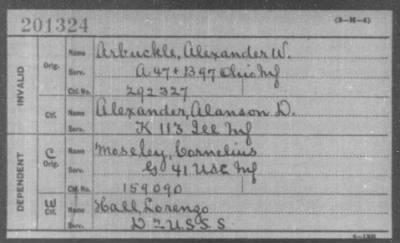 201324 (3-M-4)
INVALID
Orig. Name Arbuckle, Alexander W.
Serv. A 47 + 13 97 Ohio Inf
Ctf. No. 292327
Ctf. Name Alexander, Alanson D.
Serv. K 113 Ill Inf
DEPENDENT
C Orig. Name Moseley, Cornelius
Serv. G 41 USC Inf
Ctf. No. 159090
W Ctf. Name Hall, Lorenzo
Serv. D 2 U.S.S.S